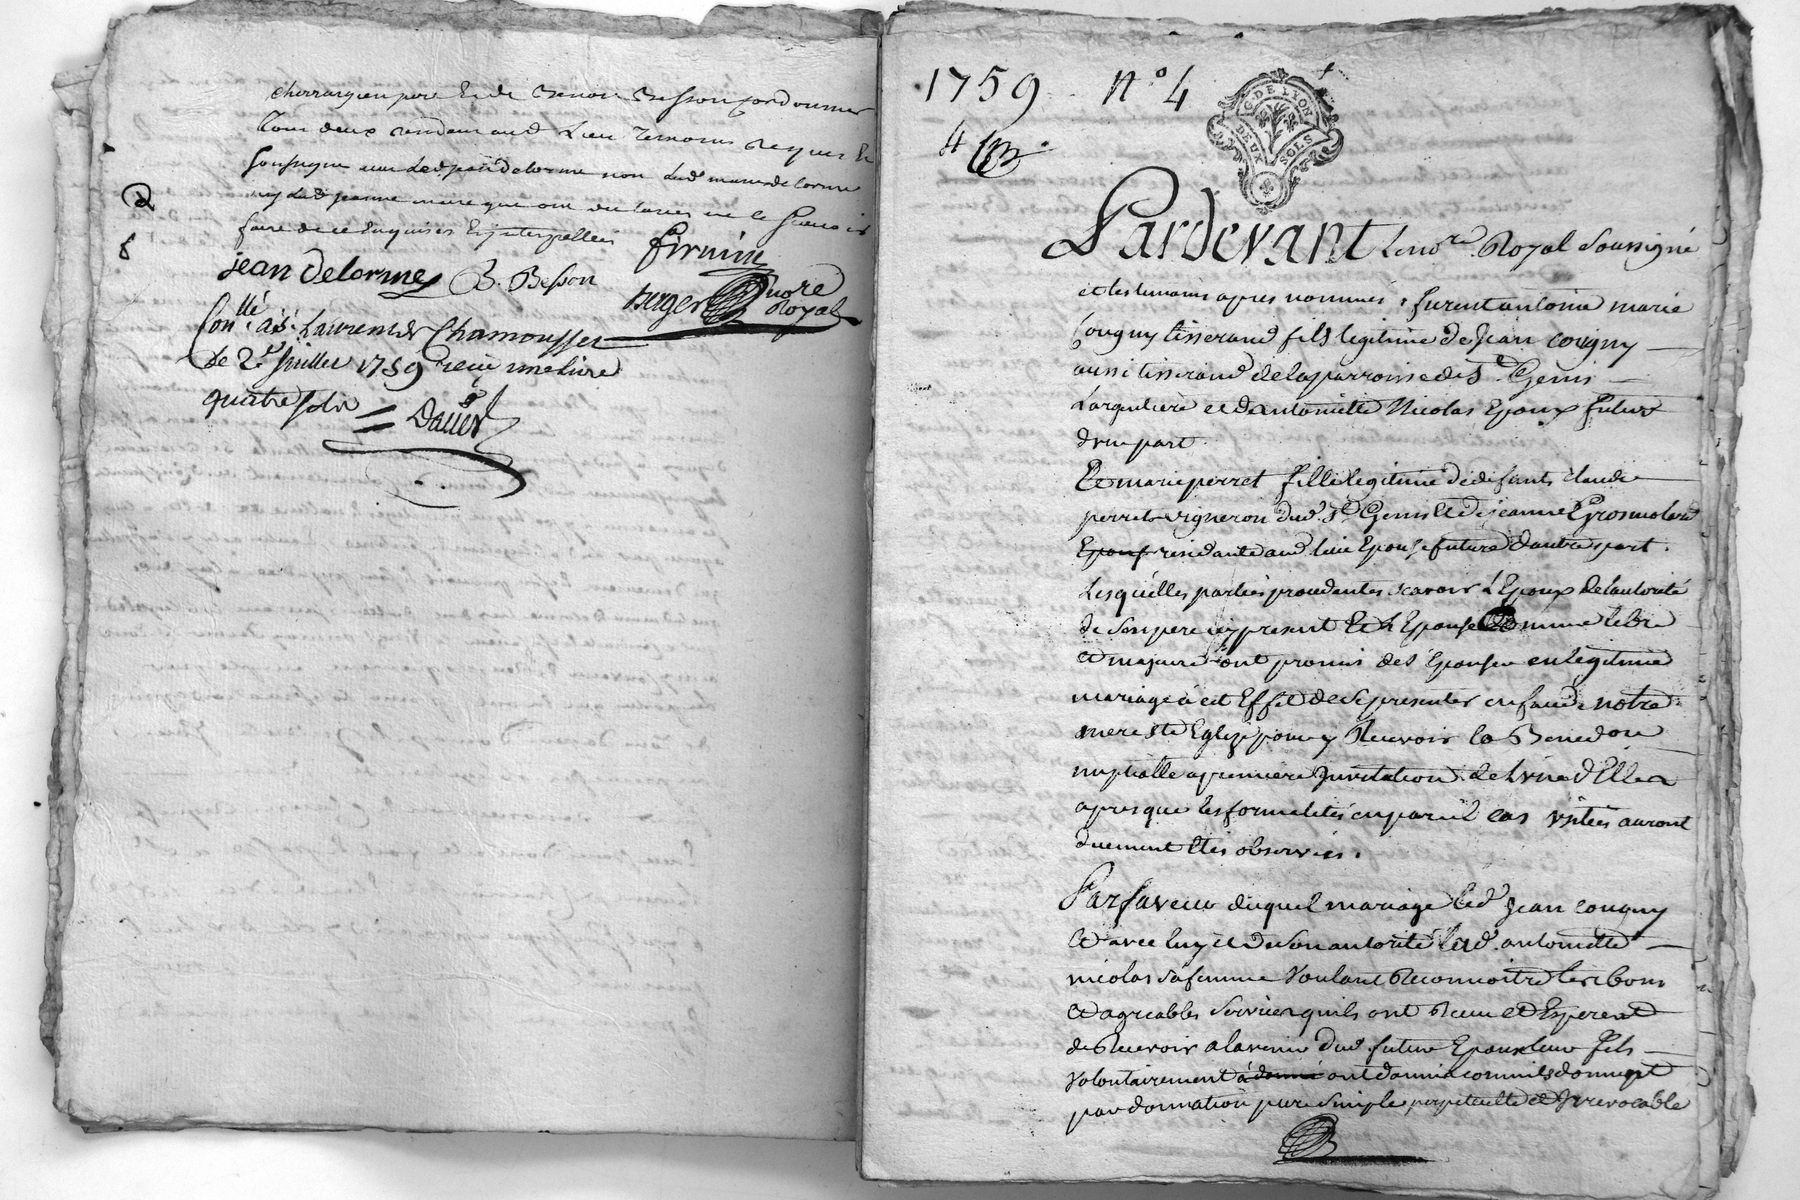 chirurgien pere Et de Benoit Besson cordonnier
tous deux aud Lieu temoins Requis Et
soussigné avec Led jean delorme non Lad marie delorme
ny Lad jeanne que ont declarés ne le scavoir
faire de ce Enquises Et jnterpellées
jean delorme B. Besson firmin
Berger nore Royal
Conllé à St. Laurent de Chamousset
Le 2e Juillet 1759 reçu une livre
quatre sols
Dauer
1759 N° 4
4
G. DE LYON
DEUX SOLS
Pardevant Le nore Royal Soussigné
et les temoins apres nommés, furent antoine marie
Cougny tisserand fils legitime de Jean cougny
aussi tisserand de la parroisse de St Genis
Largentiere et d'antoinette Nicolas Epoux futur
d'une part
Et marie perret fille legitime de defunts claude
perret vigneron dud. St Genis Et de jeanne Grosmolard
Epouse residante aud lieu Epouse future d'autre part.
Lesquelles parties procedantes scavoir L'Epoux de l'autorité
de Son pere icy present Et L'Epouse comme libre
et majeure ont promis de S'épouser en legitime
mariage à cet Effet de Se presenter en face de notre
mere Ste Eglize pour y Recevoir la Benedon
nuptialle a premiere jnvitation de L'une d'Elles
apres que les formalités en pareil cas usitées auront
duement Etés observées.
Par faveur duquel mariage led. Jean cougny
Et avec luy et de Son autorité lad. antoinette
nicolas sa femme Voulant Reconnoitre les bons
et agreables Services qu'ils ont Receu et Esperent
de Recevoir a l'avenir dud futur Epoux leur fils
volontairement à donné ont donné comme ils donnent
par donnation pure Simple perpetuelle et jrrevocable